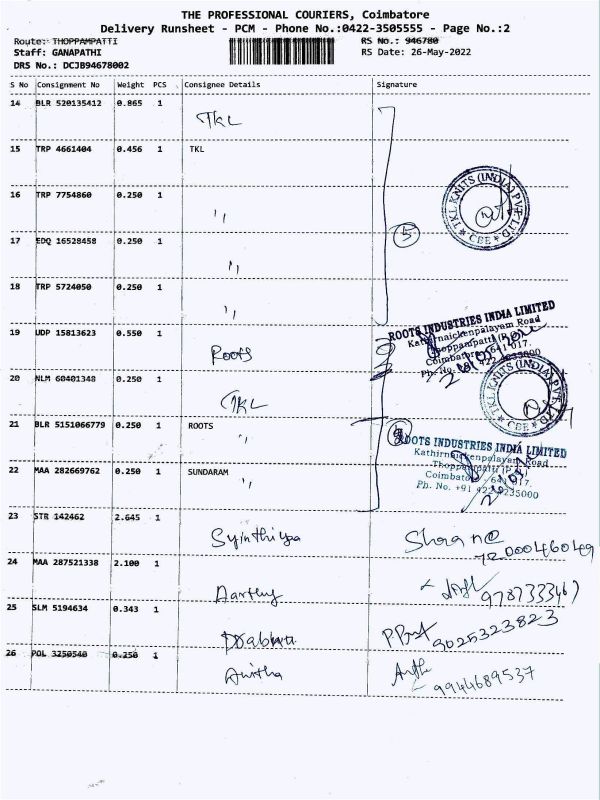 THE PROFESSIONAL COURIERS, Coimbatore
Delivery Runsheet - PCM - Phone No.:0422-3505555 - Page No.:2
Route: THOPPAMPATTI RS No.: 946780
Staff: GANAPATHI RS Date: 26-May-2022
DRS No.: DCJB94678002
S No Consignment No Weight PCS Consignee Details Signature
14 BLR 520135412 0.865 1
TKL
15 TRP 4661404 0.456 1 TKL
16 TRP 7754860 0.250 1
"
17 EDQ 16528458 0.250 1
"
18 TRP 5724050 0.250 1
"
5
TKL KNITS (INDIA) PVT LTD
* CBE *
19 UDP 15813623 0.550 1
Roots
ROOTS INDUSTRIES INDIA LIMITED
Kathirnaickenpalayam Road
Thoppampatti (P.O)
Coimbatore - 641 017.
20 NLM 60401348 0.250 1
TKL
TKL KNITS (INDIA) PVT LTD
21 BLR 5151066779 0.250 1 ROOTS
"
ROOTS INDUSTRIES INDIA LIMITED
Kathirnaickenpalayam Road
Thoppampatti (P.O)
Coimbatore - 641 017.
Ph. No. +91 422 4235000
22 MAA 282669762 0.250 1 SUNDARAM
"
23 STR 142462 2.645 1
24 MAA 287521338 2.100 1
Aarthy
25 SLM 5194634 0.343 1
9025323823
26 POL 3250540 0.250 1
Anitha
9944689537